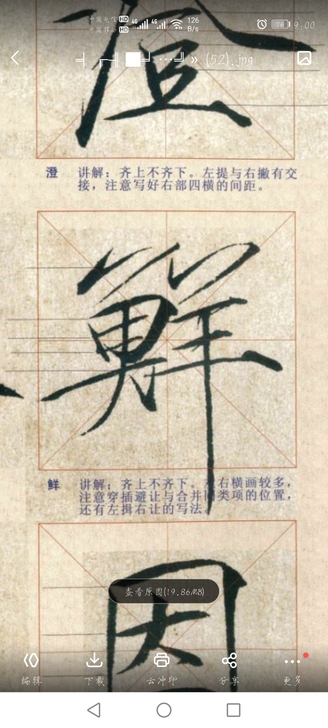 126
B/s
9:00
(52).jpg
澄
澄 讲解：齐上不齐下。左提与右撇有交
接，注意写好右部四横的间距。
鲜
鲜 讲解：齐上不齐下。左右横画较多，
注意穿插避让与合并同类项的位置，
还有左揖右让的写法。
因
查看原图(19.86MB)
编辑
下载
云冲印
分享
更多